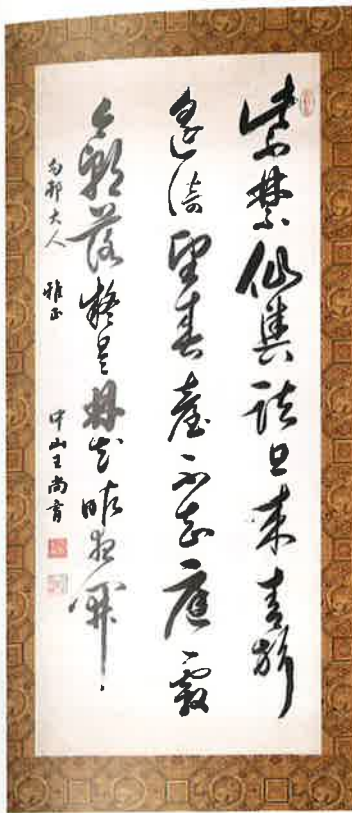 紫禁仙輿詰旦来青旂
遙倚望春臺不知庭霰
今朝落疑是林花昨夜開
向邦大人 雅正 中山王尚育